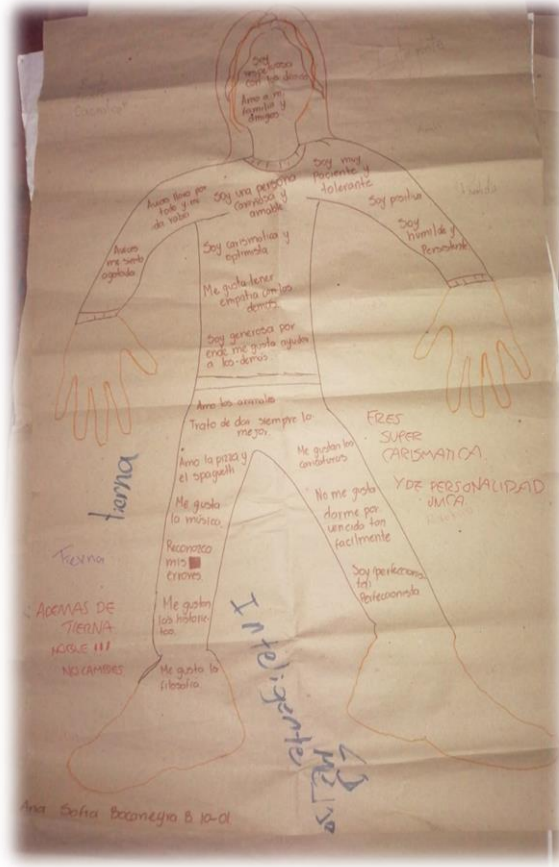 Soy
respetuosa
con los demás
Amo a mi
familia y
amigos
Aveces lloro por
todo y me
da rabia
Aveces
me siento
agotada
Soy una persona
cariñosa y
amable
Soy muy
paciente y
tolerante
Soy positiva
Soy
humilde y
Persistente
Soy carismatica y
optimista
Me gusta tener
empatia con los
demas
Soy generosa por
ende me gusta ayudar
a los demas.
Amo los animales
Trato de dar siempre lo
mejor.
Amo la pizza y
el spaguetti
Me gusta
la música.
Reconozco
mis
errores.
Me gustan
las
Me gusta la
filosofia.
Me gustan las
caricaturas
No me gusta
darme por
vencida tan
facilmente
Soy
Perfeccionista
ERES
SUPER
CARISMATICA.
Y DE PERSONALIDAD
UNICA.
tierna
Tierna
ADEMAS DE
TIERNA
NOBLE !!!
NO CAMBIES
Inteligente
Ana Sofia Bocanegra B. 10-01